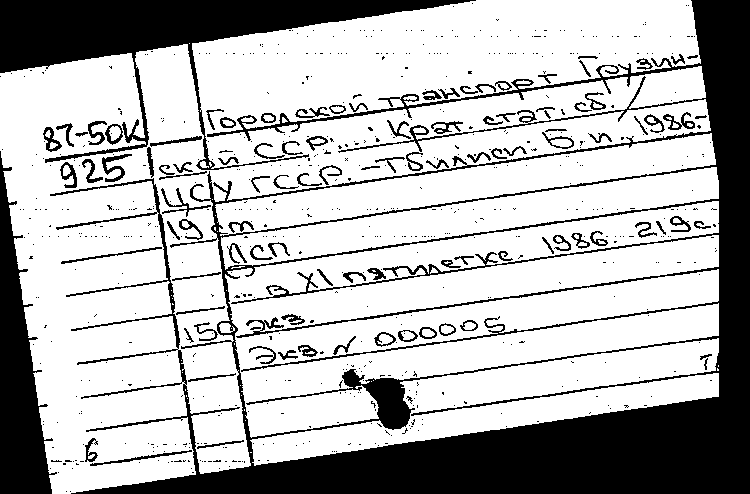 87-50К
925
Городской транспорт Грузин-
ской ССР....: Крат. стат. сб. /
ЦСУ ГССР. - Тбилиси: Б. и., 1986.-
19 см.
Дсп.
... в XI пятилетке. 1986. 219 с.
150 экз.
Экз. N 000005.
б